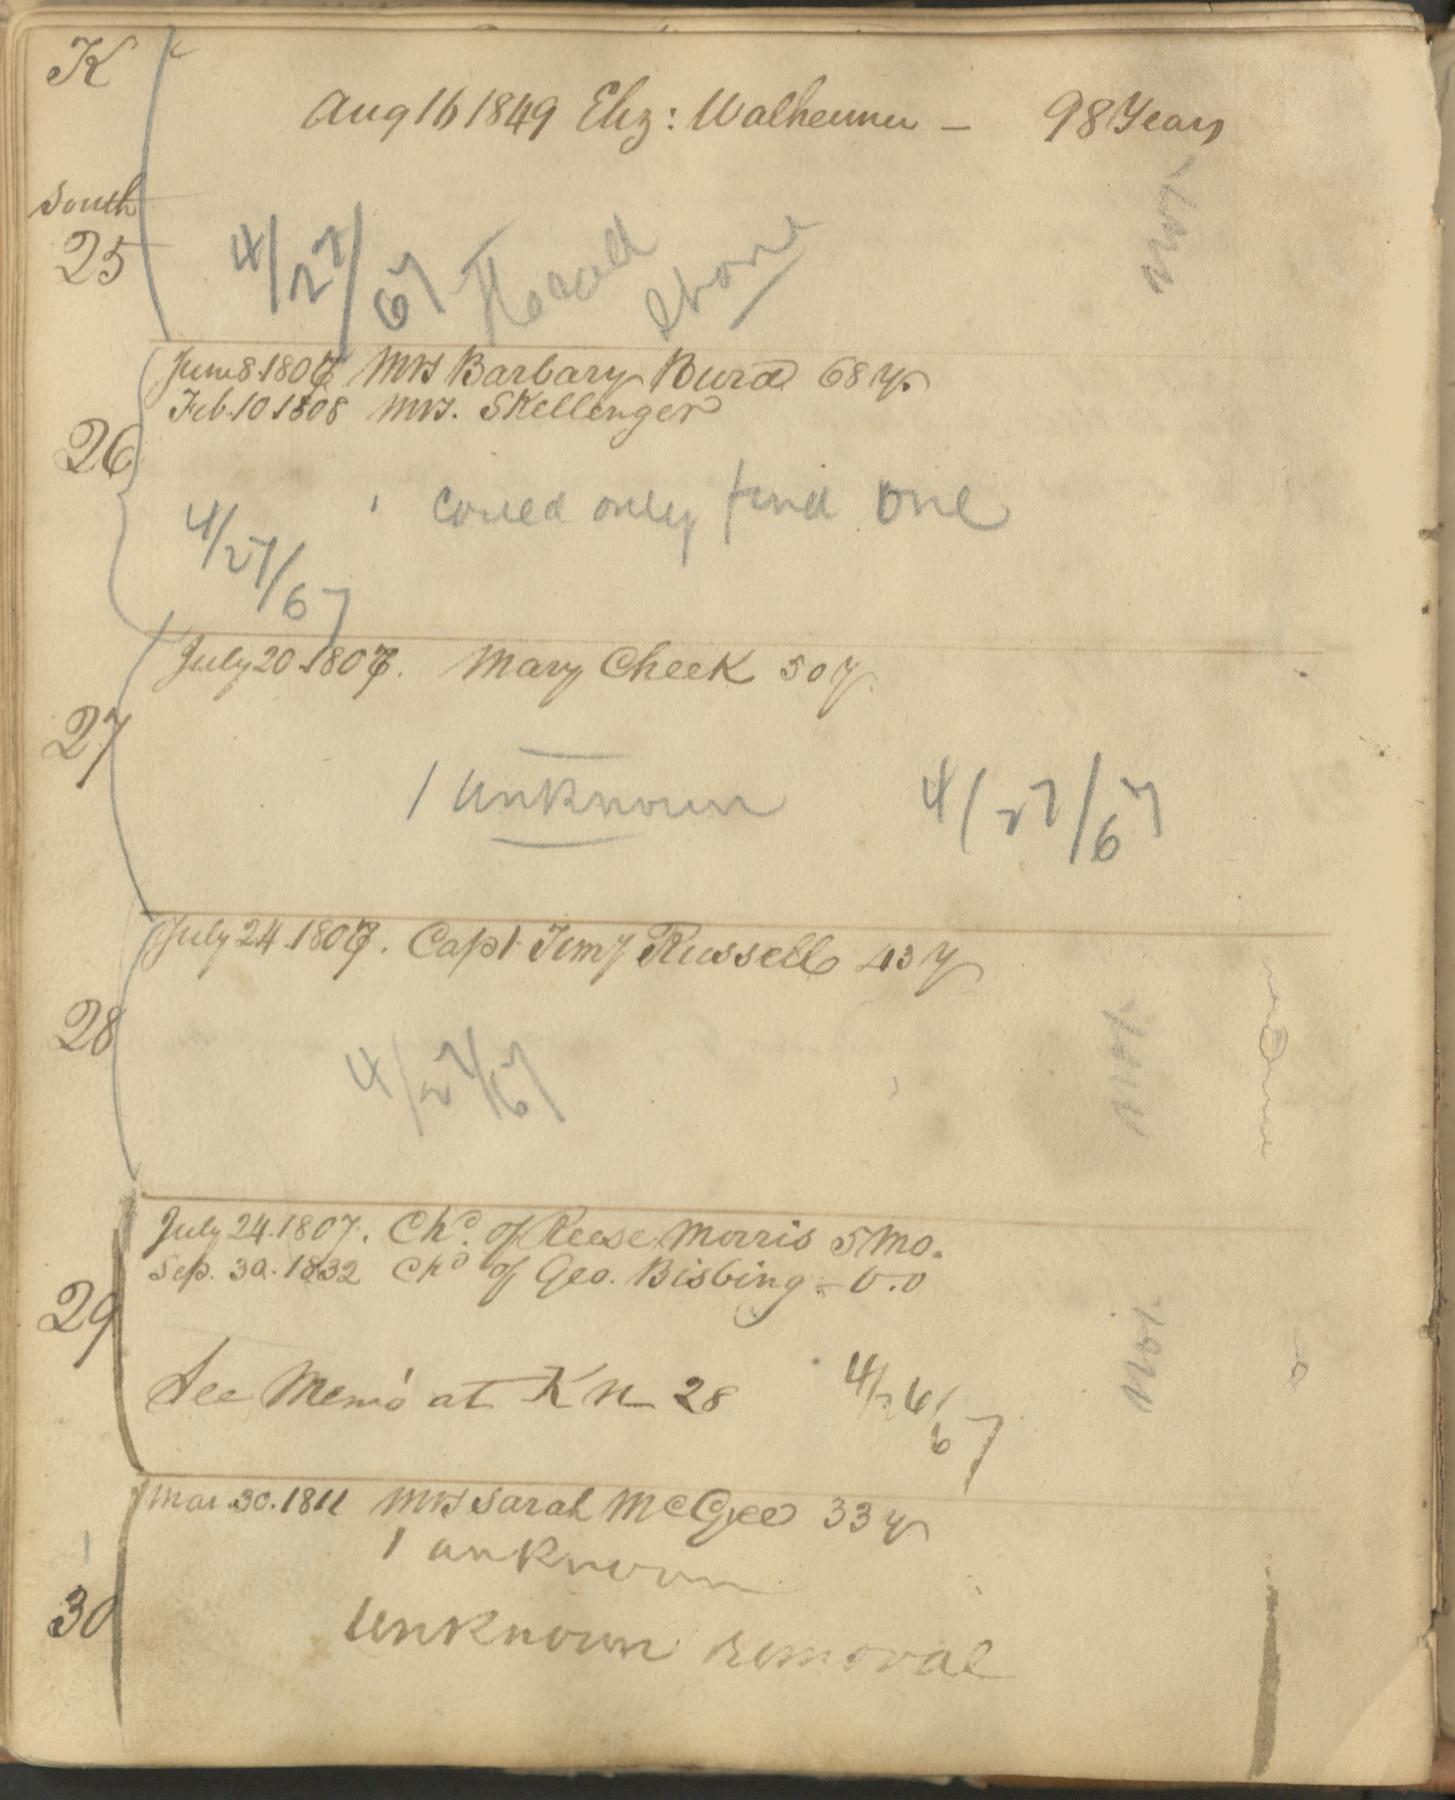 K
Aug 16 1849 Eliz: Walhemer – 98 Years
South
25
4/27/67 Headstone
Not
June 8. 1807 Mrs Barbary Burd 68 y.
Feb. 10. 1808 Mrs. Skellenger
26
Could only find one
4/27/67
July 20. 1807. Mary Cheek 50 y.
27
1 unknown 4/27/67
July 24. 1807. Capt. Jemy Russell 43 y
28
4/27/67
Not
July 24. 1807. Chd. of Reese Morris 5 Mo.
Sep. 30. 1832 Chd of Geo. Bisbing – 0.0
29
Not
See Memo at K N 28 4/26/67
Mar. 30. 1811 Mrs Sarah McGee 33 y
1 unknown
30
Unknown Removal